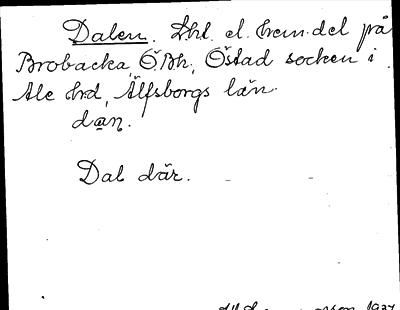 Dalen. Lhl. el. hem.del på
Brobacka ÖBh, Östad socken i
Ale hd, Älfsborgs län.
dan.
Dal där.
1927